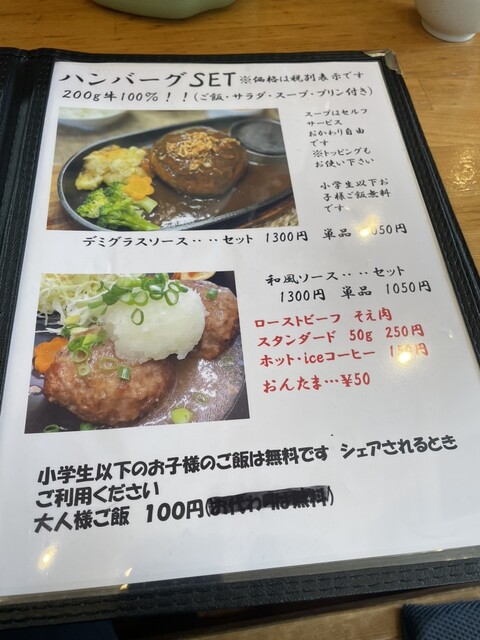 ハンバーグSET ※価格は税別表示です
200g牛100%！！(ご飯・サラダ・スープ・プリン付き)
スープはセルフ
サービス
おかわり自由
です
※トッピングも
お使い下さい
小学生以下お
子様ご飯無料
です。
デミグラスソース‥‥セット 1300円 単品 1050円
和風ソース‥‥セット
1300円 単品 1050円
ローストビーフ そえ肉
スタンダード 50g 250円
ホット・iceコーヒー 150円
おんたま…¥50
小学生以下のお子様のご飯は無料です シェアされるとき
ご利用ください
大人様ご飯 100円